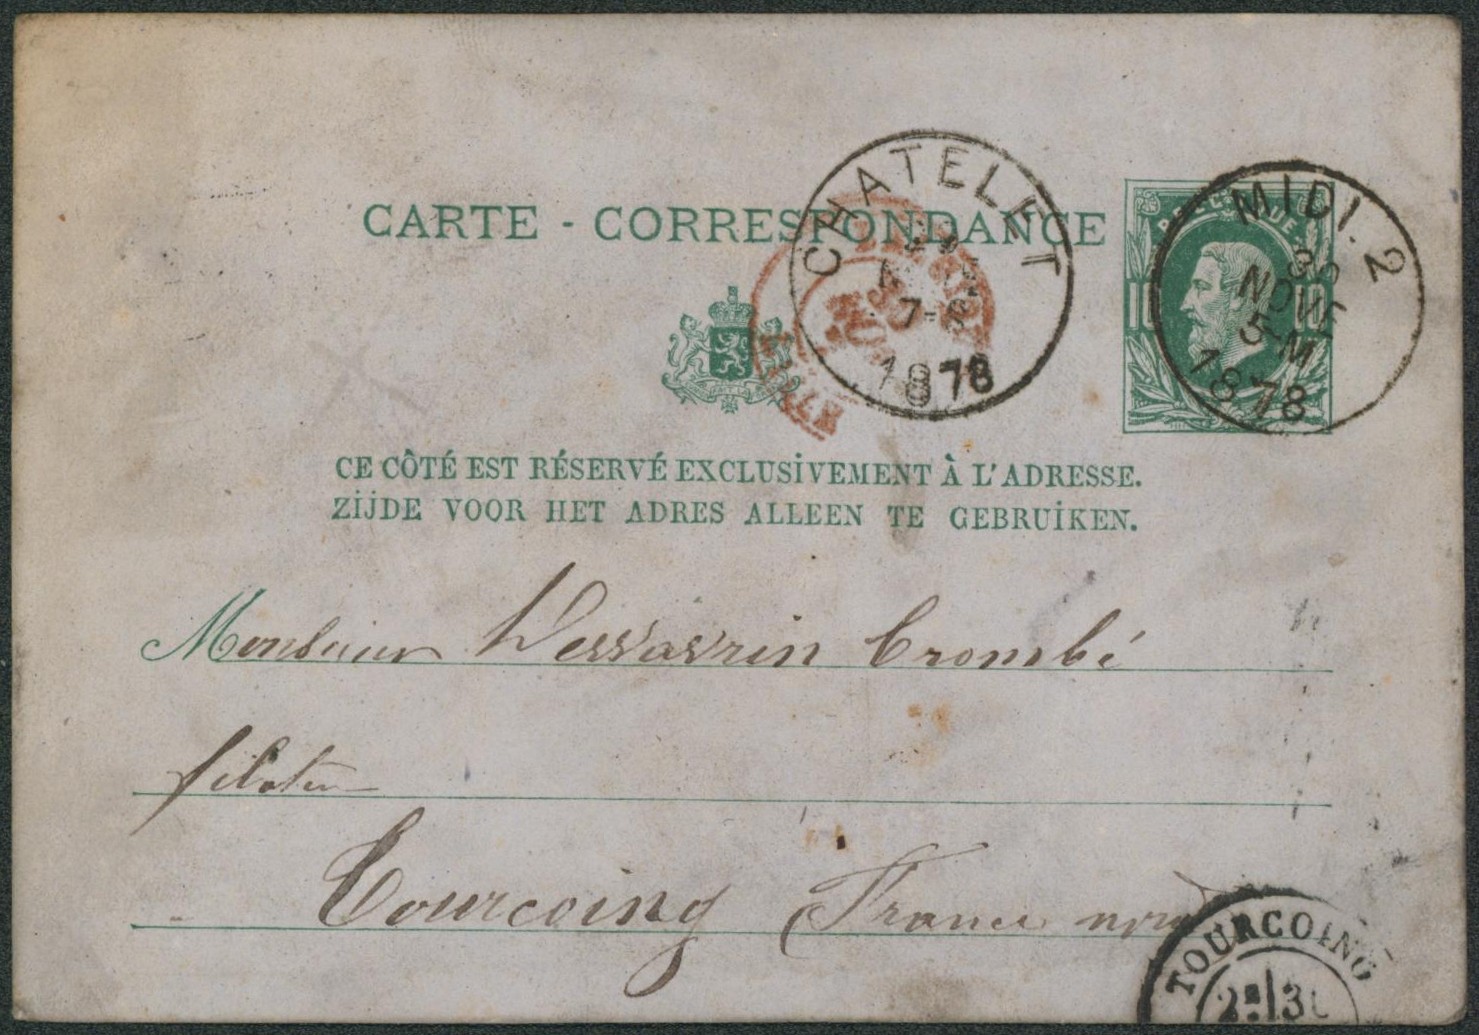 CARTE - CORRESPONDANCE
CHATELET
7-8
1878
MIDI. 2
30
NOVE
5-M
1878
10 10
LILLE
CE CÔTÉ EST RÉSERVÉ EXCLUSIVEMENT À L'ADRESSE.
ZIJDE VOOR HET ADRES ALLEEN TE GEBRUIKEN.
Monsieur Dessavrin Crombé
filateur
Tourcoing (France nord
TOURCOING
2E 30